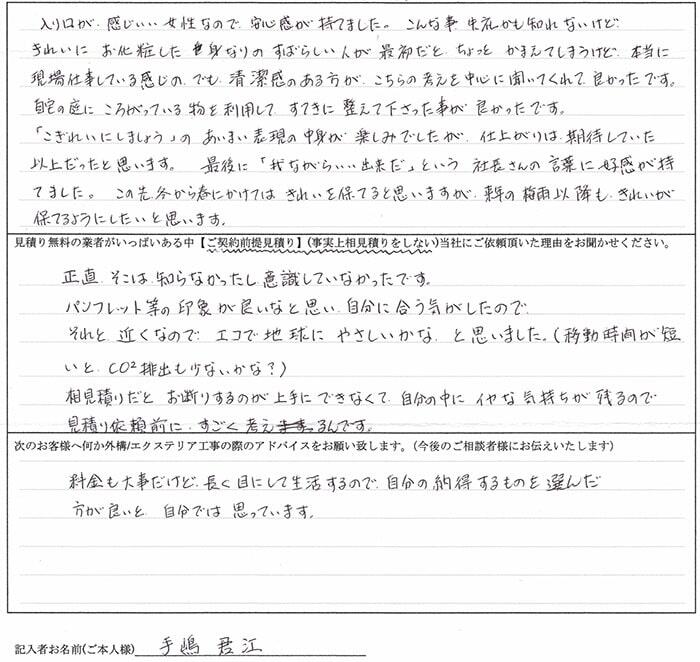 入り口が、感じいい女性なので、安心感が持てました。こんな事失礼かも知れないけど、
きれいにお化粧した身なりのすばらしい人が最初だと、ちょっとかまえてしまうけど、本当に
現場仕事している感じの、でも、清潔感のある方が、こちらの考えを中心に聞いてくれて、良かったです。
自宅の庭にころがっている物を利用して、すてきに整えて下さった事が良かったです。
「こぎれいにしましょう」のあいまい表現の中身が楽しみでしたが、仕上がりは、期待していた
以上だったと思います。 最後に「我ながらいい出来だ」という社長さんの言葉に好感が持
てました。この先、冬から春にかけてはきれいを保てると思いますが、来年の梅雨以降も、きれいが
保てるようにしたいと思います。
見積り無料の業者がいっぱいある中【ご契約前提見積り】(事実上相見積りをしない)当社にご依頼頂いた理由をお聞かせください。
正直、そこは、知らなかったし意識していなかったです。
パンフレット等の印象が良いなと思い、自分に合う気がしたので、
それと、近くなので、エコで地球にやさしいかな、と思いました。(移動時間が短
いと、CO²排出も少ないかな?)
相見積りだとお断りするのが上手にできなくて、自分の中にイヤな気持ちが残るので
見積り依頼前に、すごく考えるんです。
次のお客様へ何か外構/エクステリア工事の際のアドバイスをお願い致します。(今後のご相談者様にお伝えいたします)
料金も大事だけど、長く目にして生活するので、自分の納得するものを選んだ
方が良いと、自分では思っています。
記入者お名前(ご本人様) 手嶋 君江